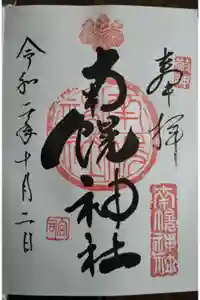 奉拝
南幌神社
南幌神社
令和二年十月二日